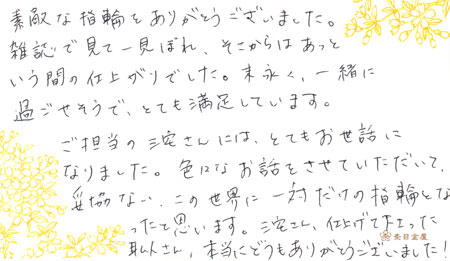 素敵な指輪をありがとうございました。
雑誌で見て一見ぼれ、そこからはあっと
いう間の仕上がりでした。末永く、一緒に
過ごせそうで、とても満足しています。
ご担当の三宅さんには、とてもお世話に
なりました。色々なお話をさせていただいて、
妥協ない、この世界に一対だけの指輪とな
ったと思います。三宅さん、仕上げて下さった
職人さん、本当にどうもありがとうございました!
杢目金屋